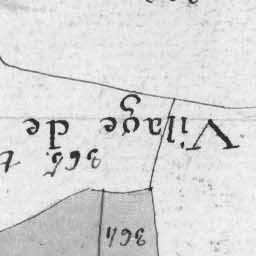 364
365 t
Village de